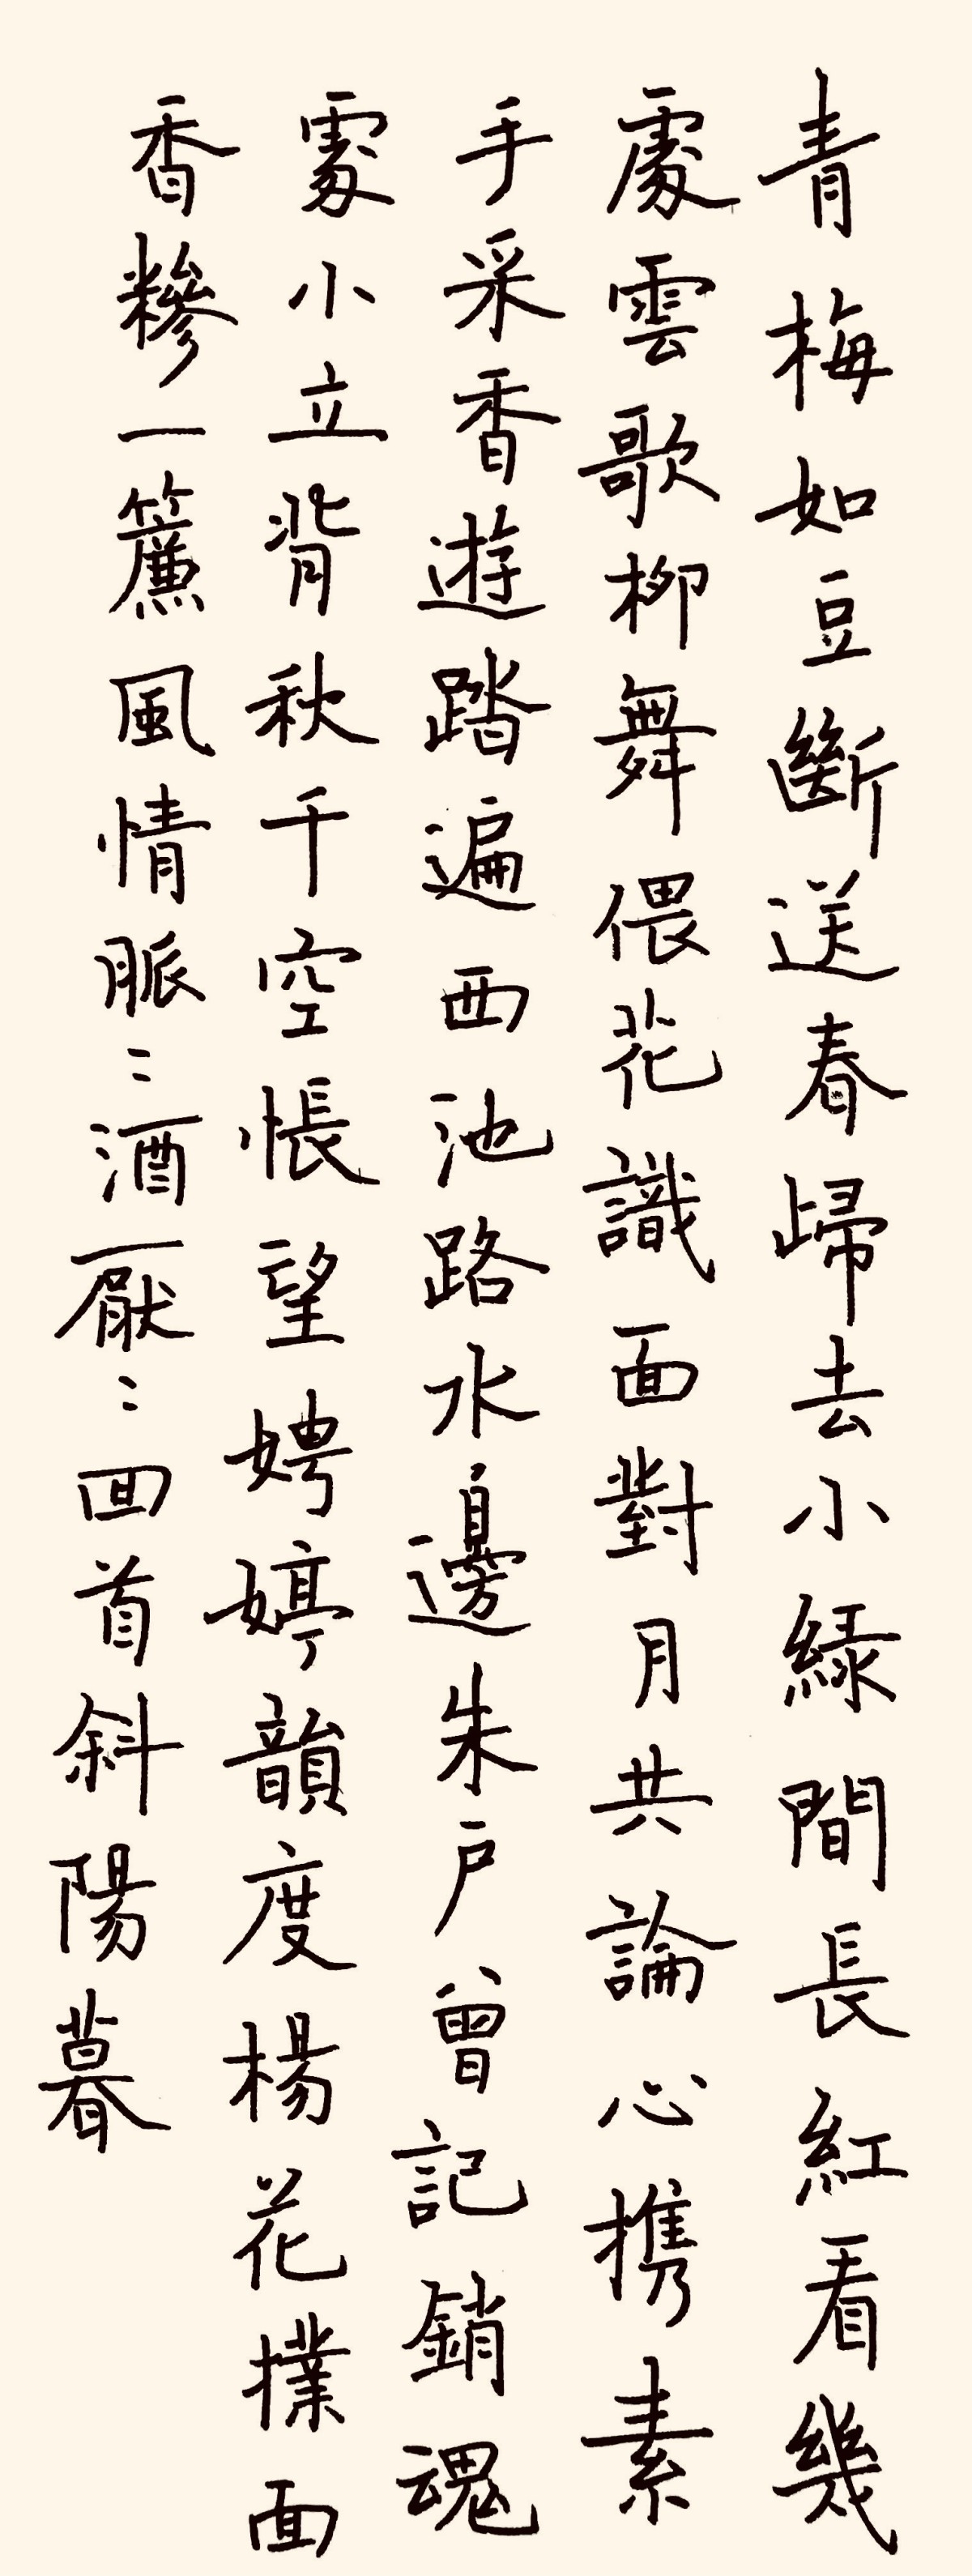 青梅如豆斷送春歸去小綠間長紅看幾
處雲歌柳舞偎花識面對月共論心携素
手采香遊踏遍西池路水邊朱戶曾記銷魂
處小立背秋千空悵望娉婷韻度楊花撲面
香糝一簾風情脈〻酒厭〻回首斜陽暮